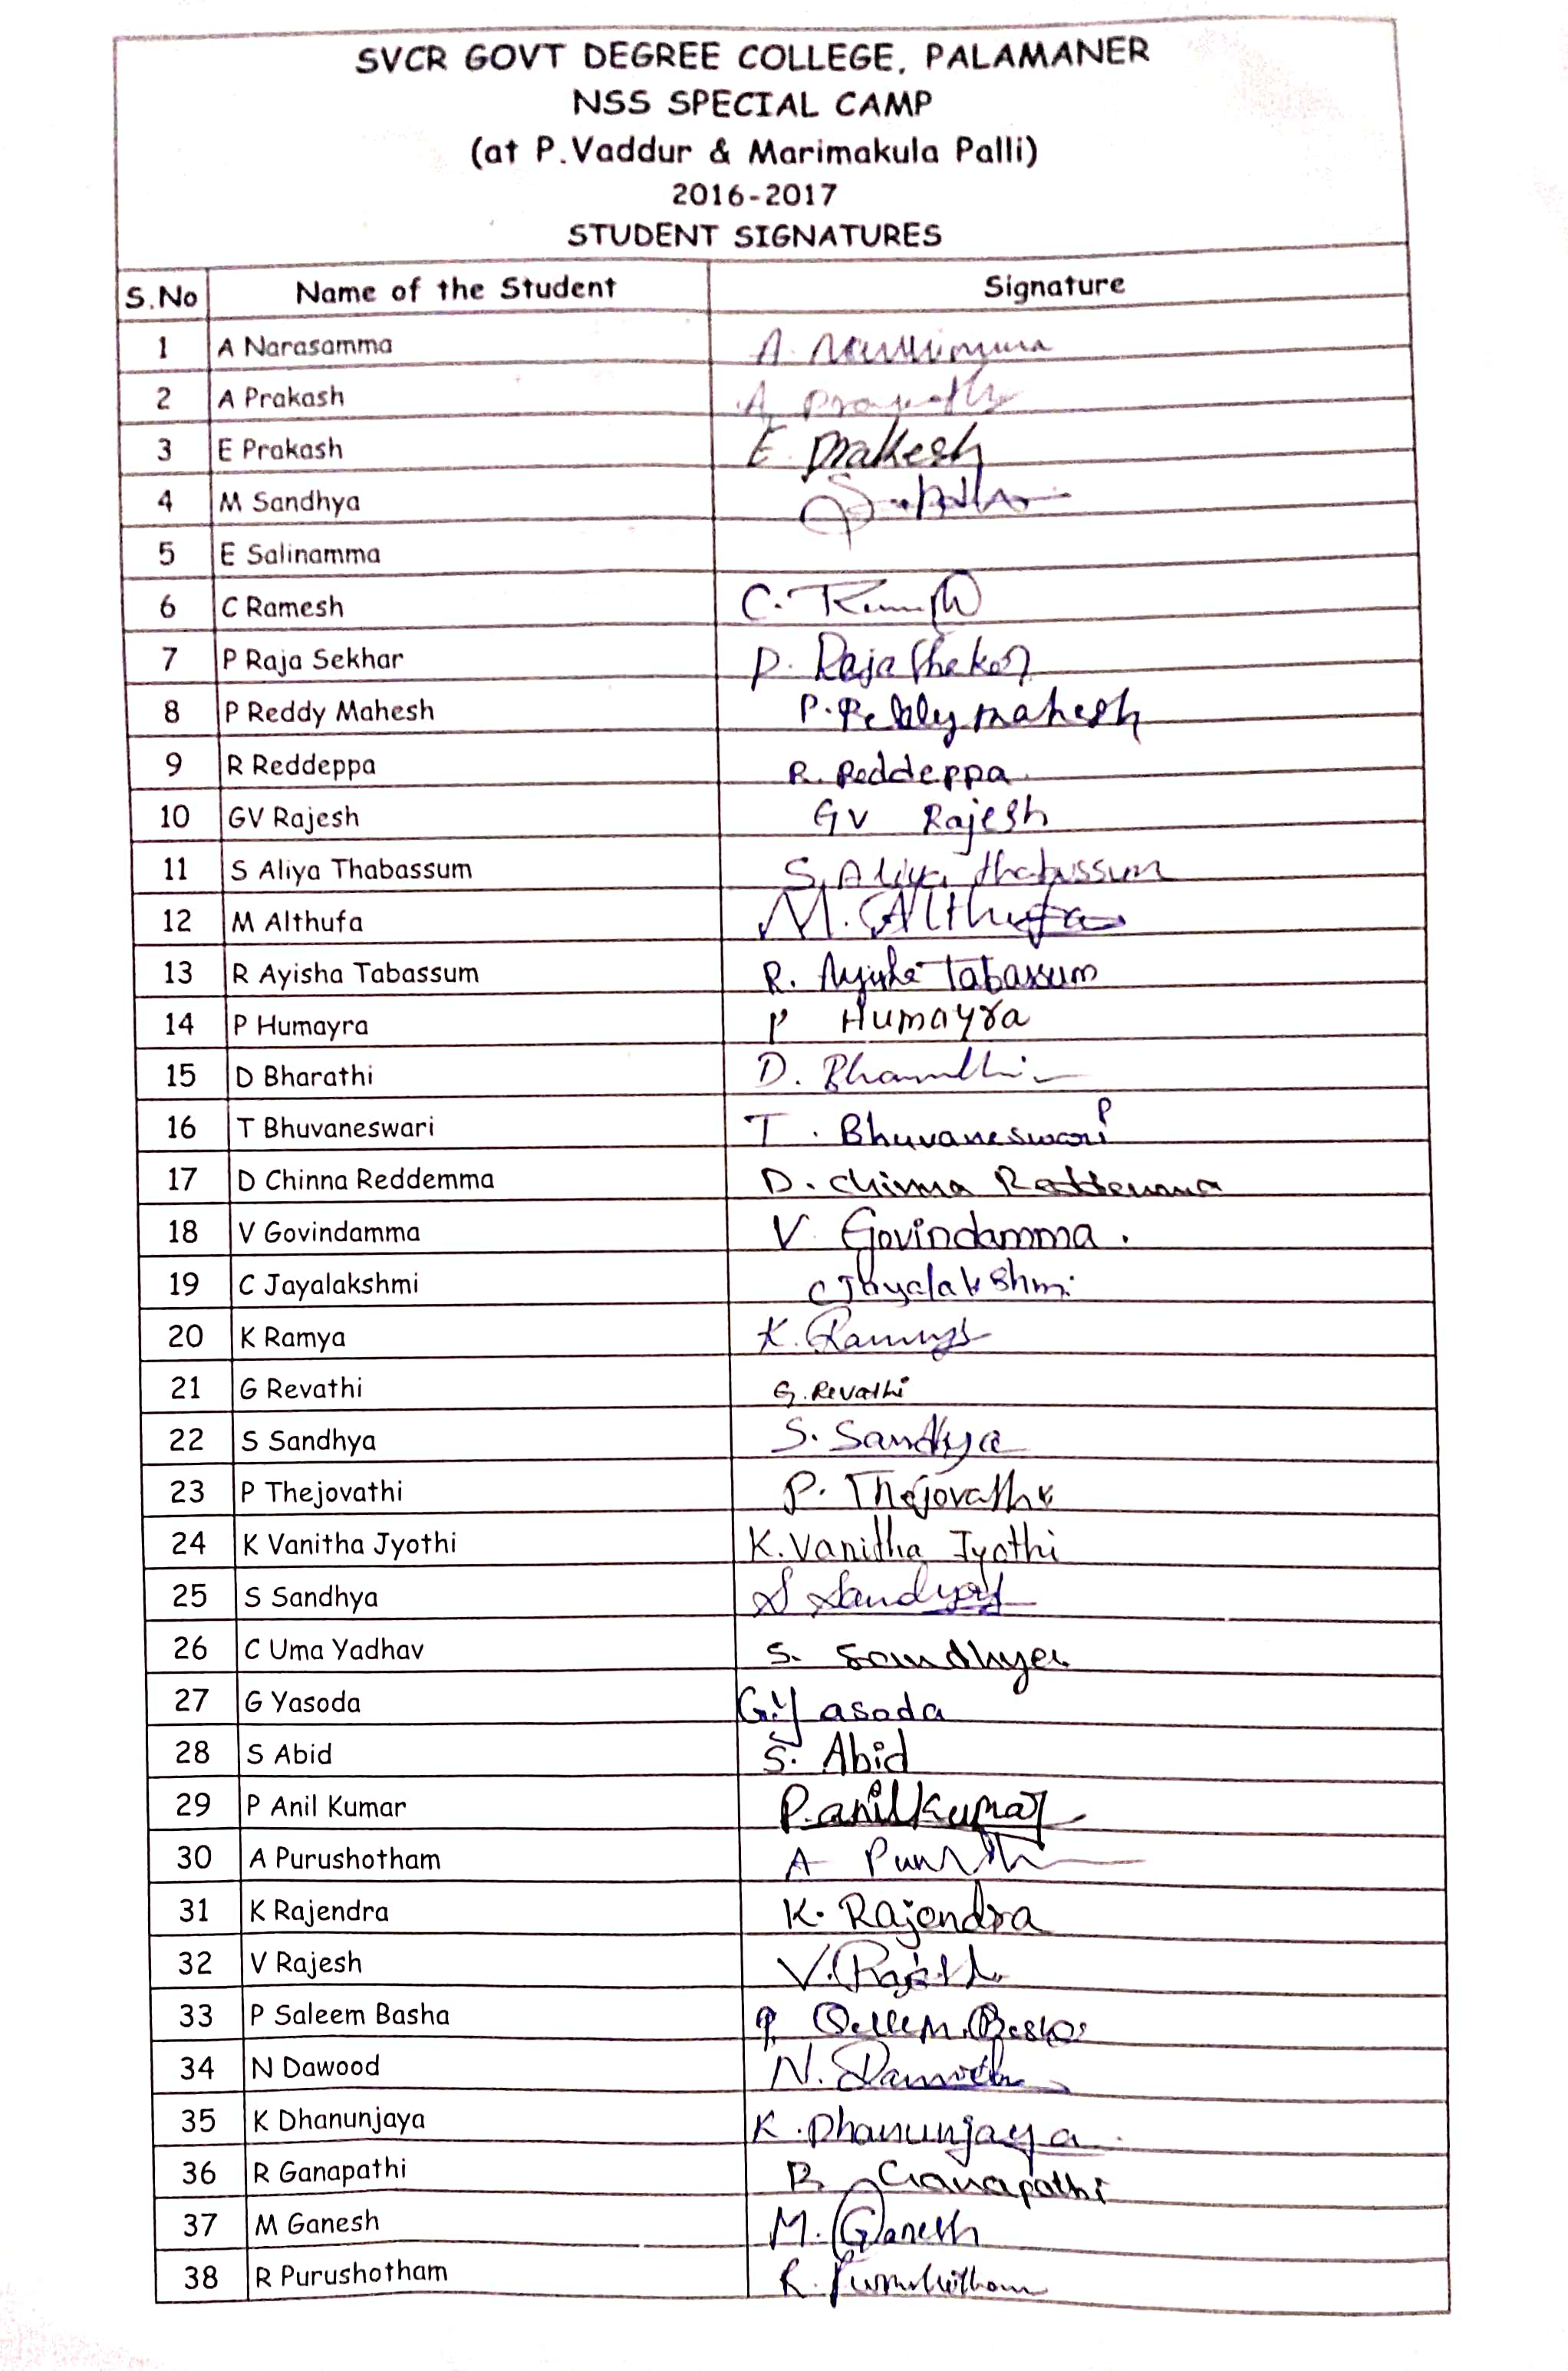 SVCR GOVT DEGREE COLLEGE, PALAMANER
NSS SPECIAL CAMP
(at P.Vaddur & Marimakula Palli)
2016-2017
STUDENT SIGNATURES
S.No Name of the Student Signature
1 A Narasamma A.
2 A Prakash A
3 E Prakash E. Prakesh
4 M Sandhya
5 E Salinamma
6 C Ramesh C.
7 P Raja Sekhar P. Raja Shekar
8 P Reddy Mahesh P. Reddy mahesh
9 R Reddeppa R. Reddeppa
10 GV Rajesh GV Rajesh
11 S Aliya Thabassum S. Aliya thabassum
12 M Althufa M. Althufa
13 R Ayisha Tabassum R. Ayisha Tabassum
14 P Humayra P Humayra
15 D Bharathi D. Bharathi
16 T Bhuvaneswari T. Bhuvaneswari
17 D Chinna Reddemma D. chinna Reddemma
18 V Govindamma V Govindamma.
19 C Jayalakshmi C Jayalakshmi
20 K Ramya K. Ramya
21 G Revathi G. Revathi
22 S Sandhya S. Sandhya
23 P Thejovathi P. Thejovathi
24 K Vanitha Jyothi K. Vanitha Jyothi
25 S Sandhya S Sandhya
26 C Uma Yadhav S. Sandhya
27 G Yasoda G.Yasoda
28 S Abid S. Abid
29 P Anil Kumar P. anilkumar
30 A Purushotham A
31 K Rajendra K. Rajendra
32 V Rajesh V. Rajesh
33 P Saleem Basha P Saleem Basha
34 N Dawood N.
35 K Dhanunjaya K. Dhanunjaya
36 R Ganapathi R Ganapathi
37 M Ganesh M. Ganesh
38 R Purushotham R. Purushotham